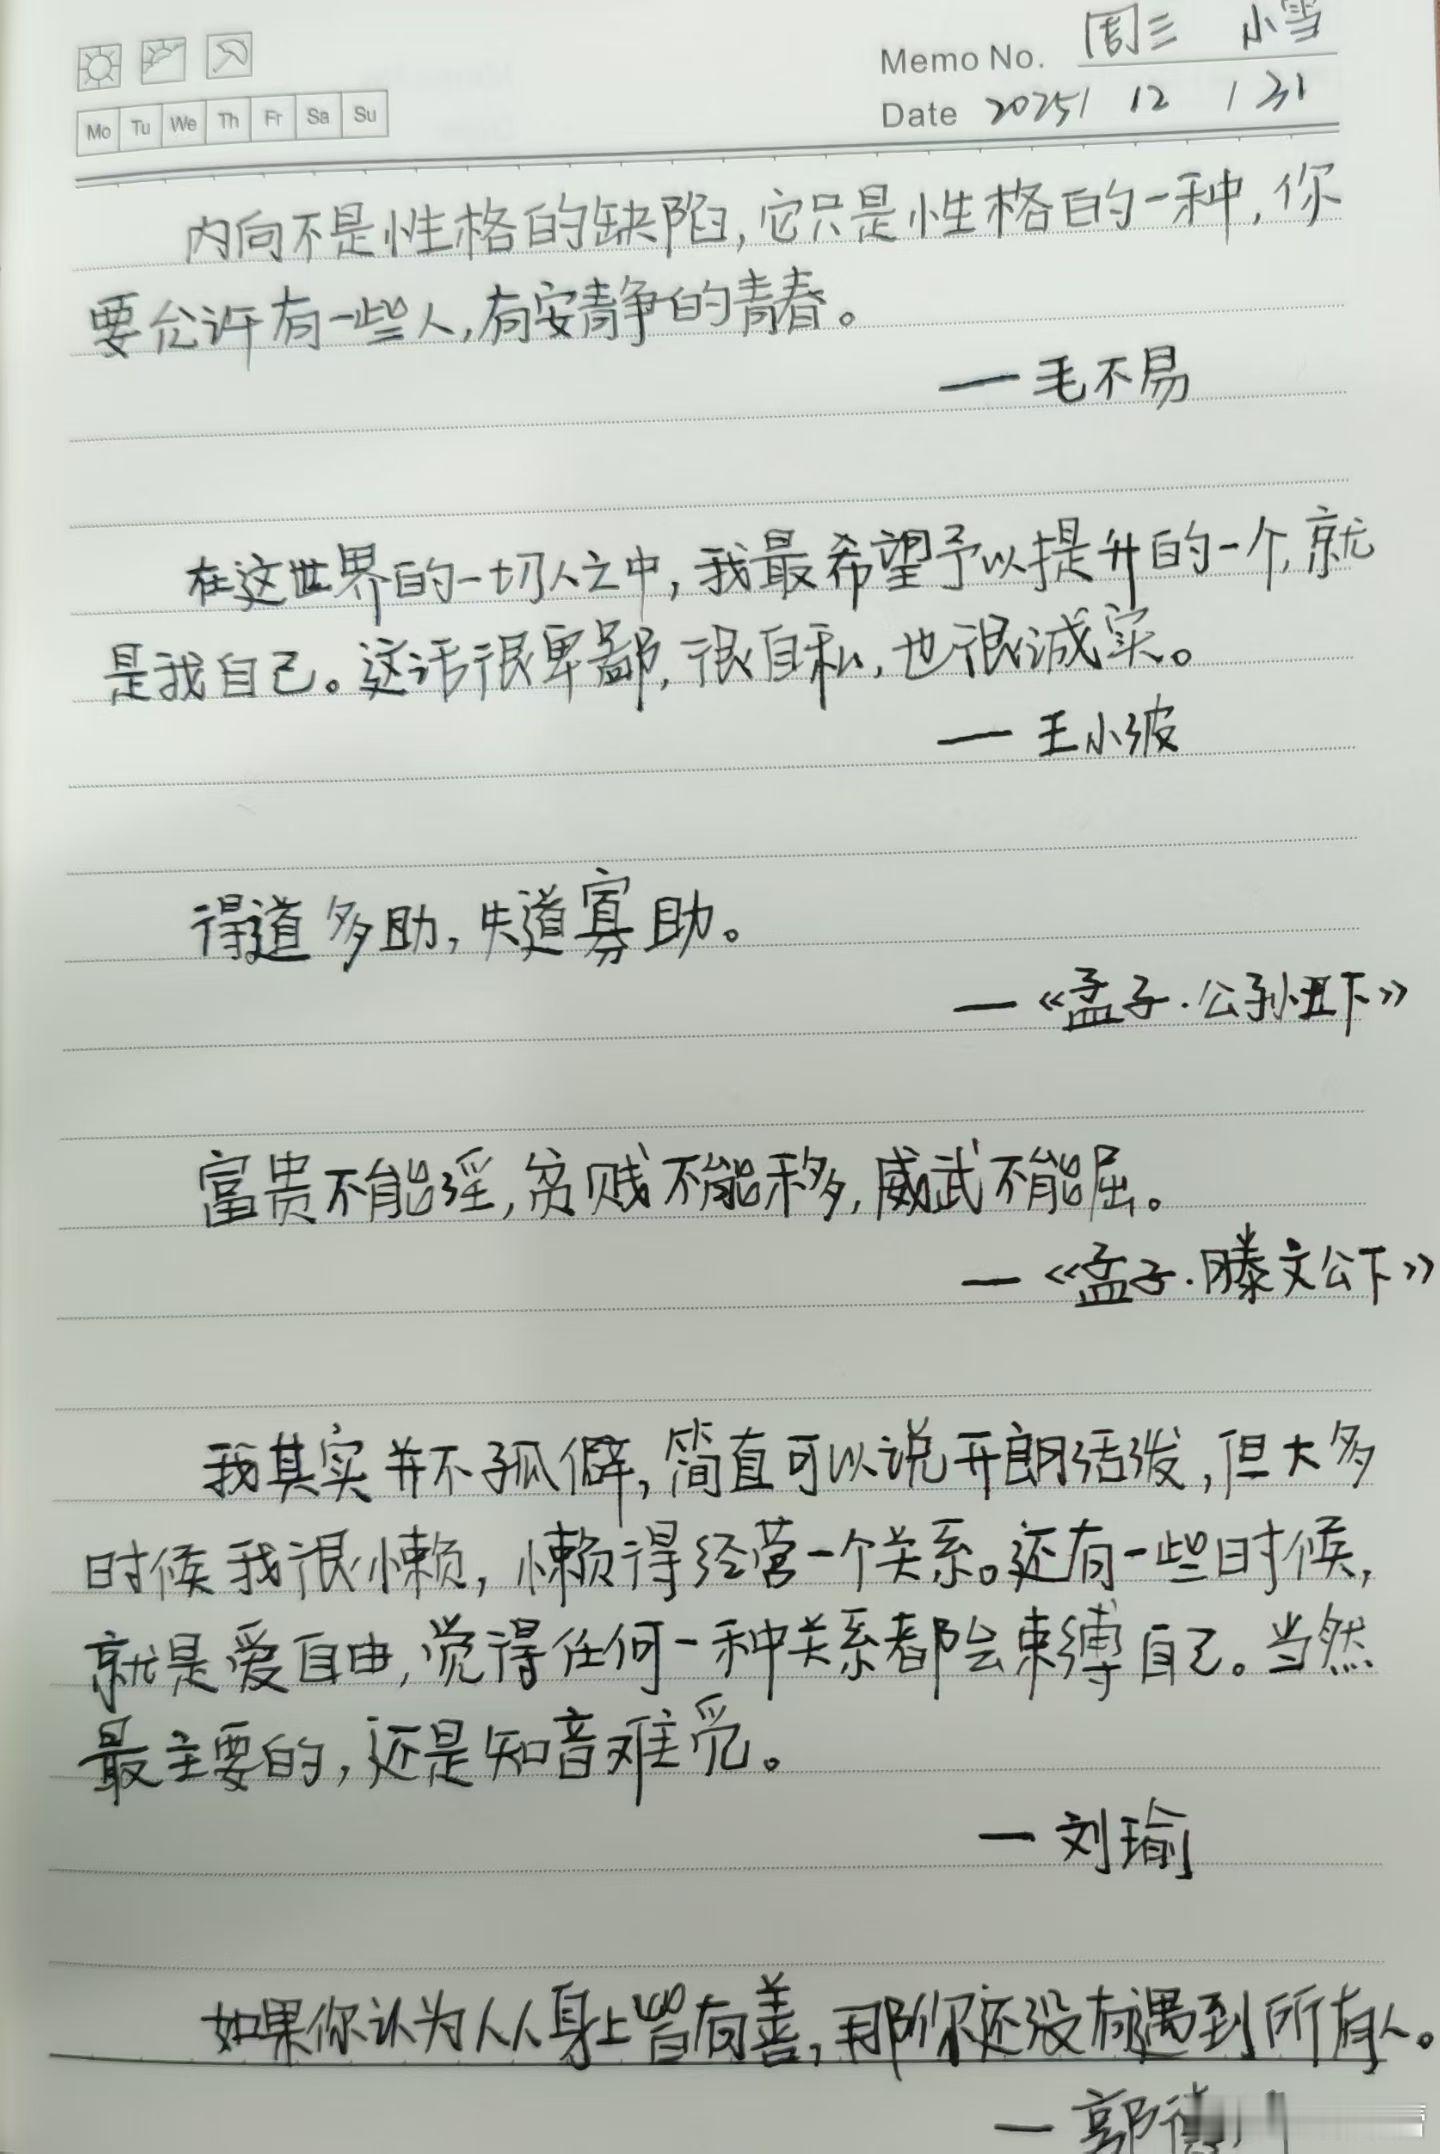 Memo No. 周三 小雪
Mo Tu We Th Fr Sa Su
Date 2025/ 12 / 31
内向不是性格的缺陷,它只是性格的一种,你
要允许有一些人,有安静的青春。
— 毛不易
在这世界的一切人之中,我最希望予以提升的一个,就
是我自己。这话很卑鄙,很自私,也很诚实。
— 王小波
得道多助,失道寡助。
— 《孟子·公孙丑下》
富贵不能淫,贫贱不能移,威武不能屈。
— 《孟子·滕文公下》
我其实并不孤僻,简直可以说开朗活泼,但大多
时候我很懒,懒得经营一个关系。还有一些时候,
就是爱自由,觉得任何一种关系都会束缚自己。当然
最主要的,还是知音难觅。
— 刘瑜
如果你认为人人身上皆有善,那你还没有遇到所有人。
— 郭德